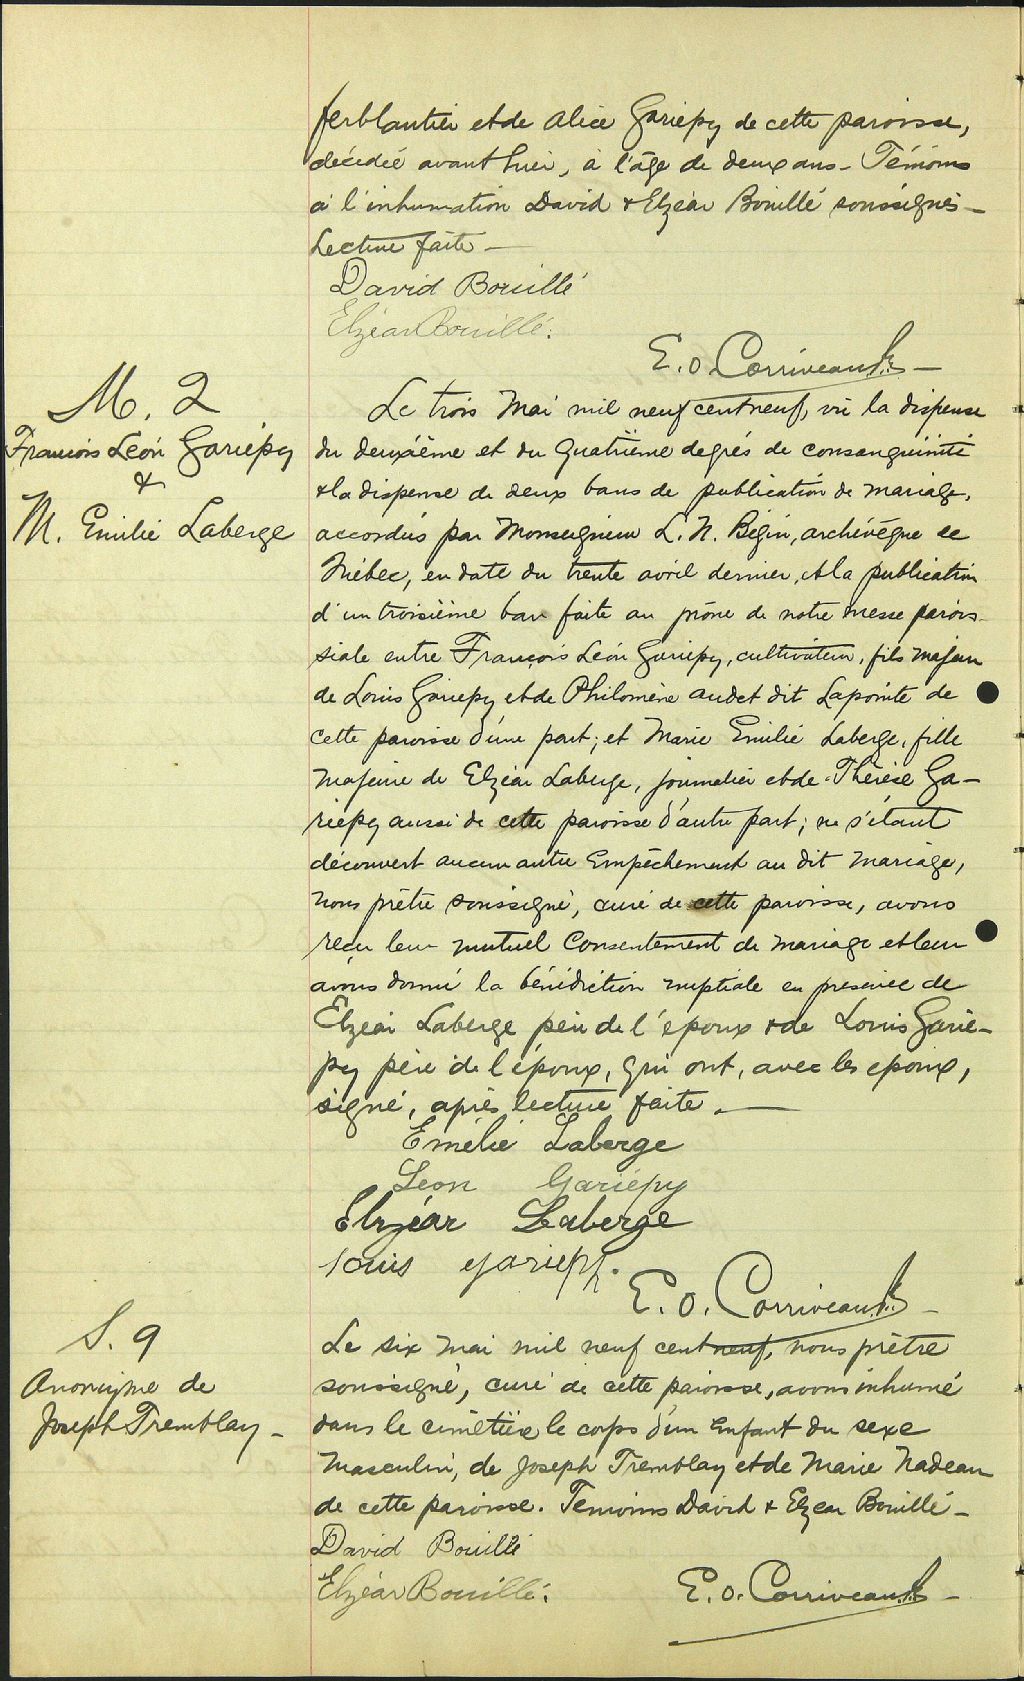 ferblantier et de Alice Gariépy de cette paroisse,
décédée avant hier, à l'âge de deux ans - Témoins
à l'inhumation David & Elzéar Bouillé soussignés -
Lecture faite -
David Bouillé
Elzéar Bouillé.
E. O. Corriveau Ptre -
M. 2
François Léon Gariépy
&
M. Emilie Laberge
Le trois Mai mil neuf cent neuf, vu la dispense
du deuxième et du quatrième degrés de consanguinité
& la dispense de deux bans de publication de mariage,
accordés par Monseigneur L. N. Bégin, archévêque de
Québec, en date du trente avril dernier, et la publication
d'un troisième ban faite au prône de notre messe parois-
siale entre François Léon Gariépy, cultivateur, fils majeur
de Louis Gariepy et de Philomène Audet dit Lapointe de
cette paroisse d'une part; et Marie Emilie Laberge, fille
majeure de Elzéar Laberge, journalier et de Thérèse Ga-
riépy aussi de cette paroisse d'autre part; ne s'étant
découvert aucun autre Empêchement au dit mariage,
Nous prêtre soussigné, curé de cette paroisse, avons
reçu leur mutuel Consentement de mariage et leur
avons donné la bénédiction nuptiale en présence de
Elzéar Laberge père de l'époux & de Louis Garié-
py père de l'époux, qui ont, avec les epoux,
signé, après lecture faite. -
Emélie Laberge
Leon Gariépy
Elzéar Laberge
louis gariepy.
E. O. Corriveau Ptre -
S. 9
Anonyme de
Joseph Tremblay -
Le six mai mil neuf cent neuf, nous prêtre
soussigné, curé de cette paroisse, avons inhumé
dans le cimetière le corps d'un Enfant du sexe
Masculin, de Joseph Tremblay et de Marie Nadeau
de cette paroisse. Temoins David & Elzear Bouillé -
David Bouillé
Elzéar Bouillé.
E. O. Corriveau Ptre -